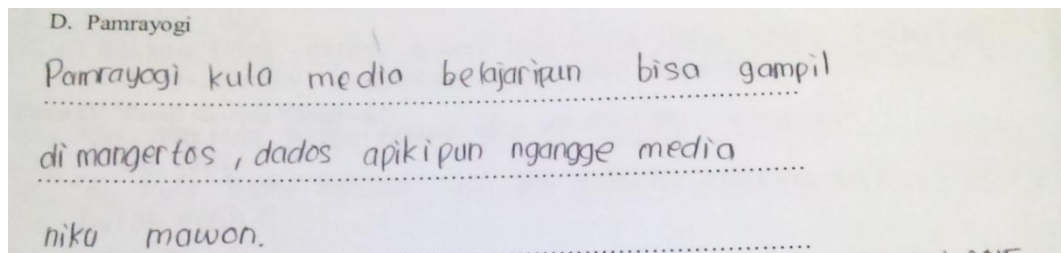 D. Pamrayogi
Pamrayogi kula media belajaripun bisa gampil
di mangertos, dados apikipun ngangge media
niku mawon.